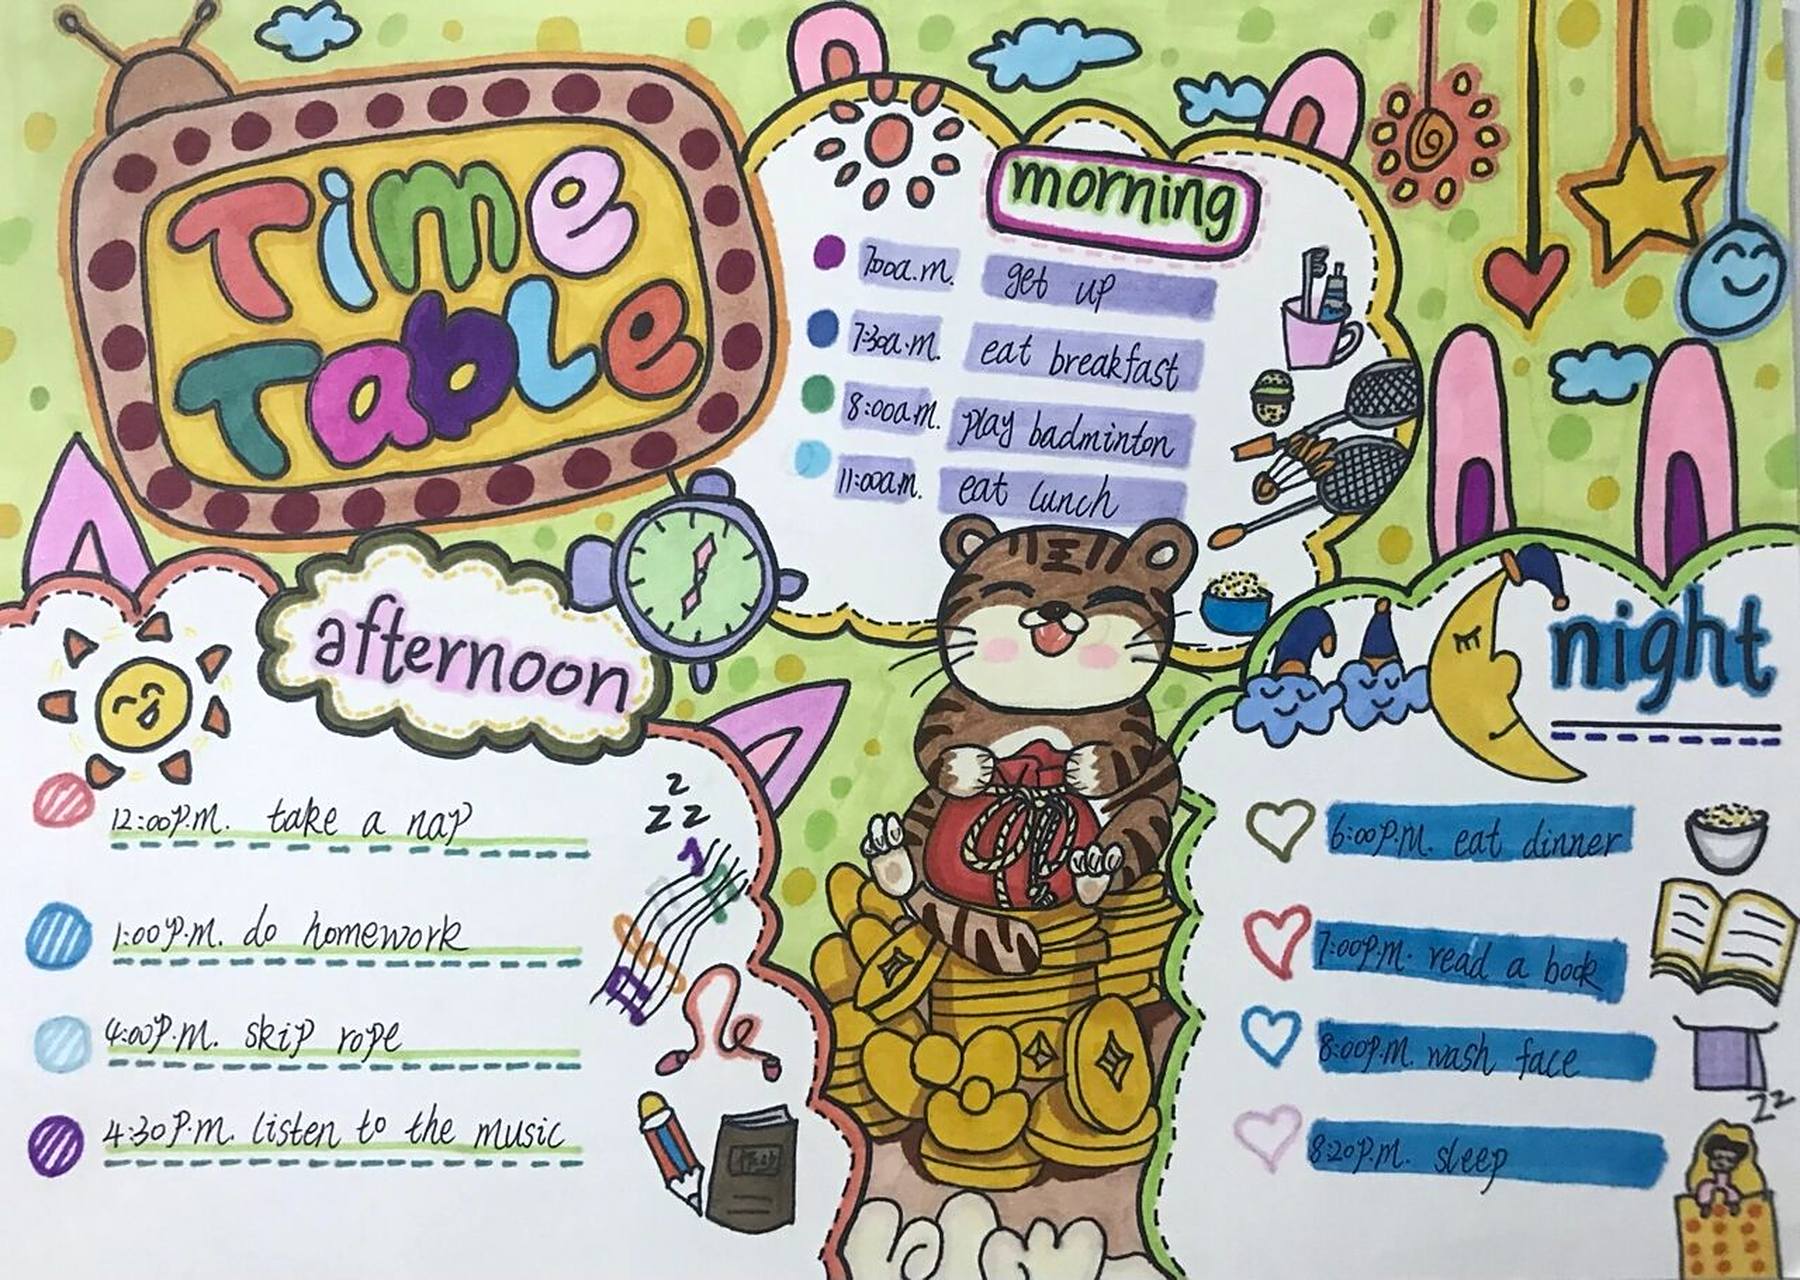 Time
Table
morning
7:00a.m. get up
7:30a.m. eat breakfast
8:00a.m. play badminton
11:00a.m. eat lunch
afternoon
12:00P.M. take a nap
1:00P.M. do homework
4:00P.M. skip rope
4:30P.M. listen to the music
z
zz
night
6:00P.M. eat dinner
7:00P.M. read a book
8:00P.M. wash face
8:20P.M. sleep
zz